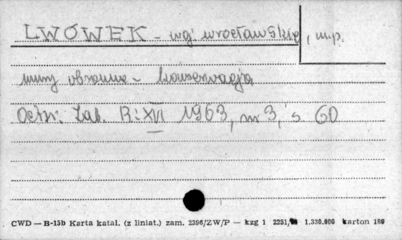 LWÓWEK - wg wrocławskie, m.p.
mury obronne - konserwacja
Ochr. Zab. R: XVI 1963, nr 3, s 60
CWD — B-15b Karta katal. (z liniat.) zam. 2396/ZW/P — kzg 1 2251, 1.330.000 karton 180